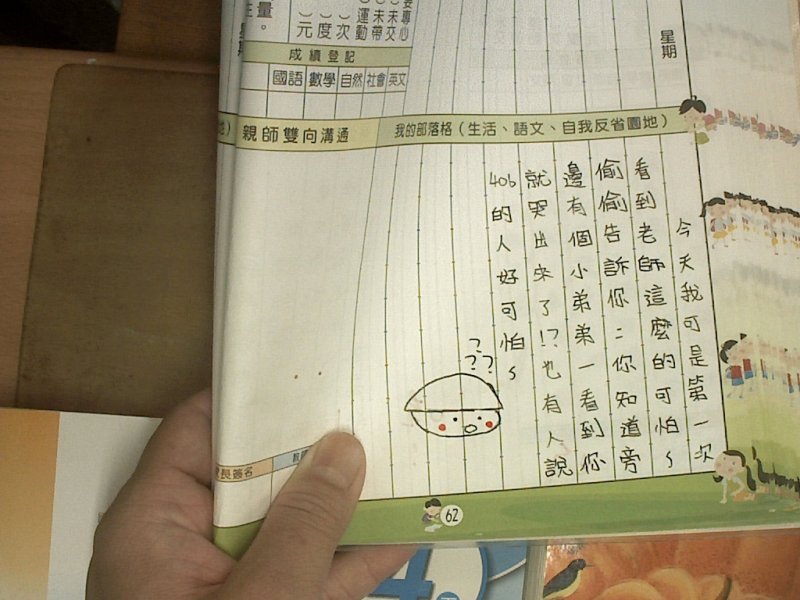 量。
）元
）度
）次
（運動
（未帶
（未交
要專心
成績登記
國語 數學 自然 社會 英文
星期
親師雙向溝通
我的部落格（生活、語文、自我反省園地）
今天我可是第一次
看到老師這麼的可怕~
偷偷告訴你：你知道旁
邊有個小弟弟一看到你
就哭出來了!?也有人說
406的人好可怕~
???
長簽名
62